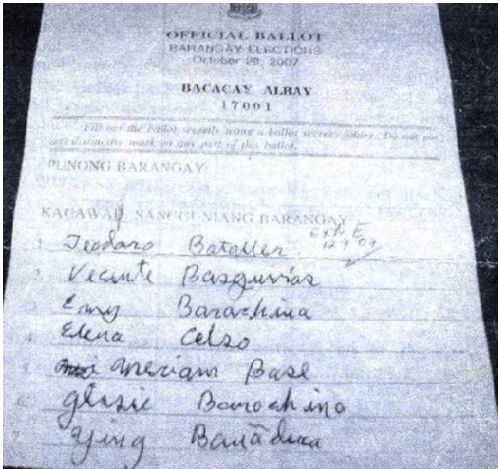 OFFICIAL BALLOT
BARANGAY ELECTIONS
October 29, 2007
BACACAY ALBAY
17001
Fill out the ballot secretly using a ballot secrecy folder. Do not put
any distinctive mark on any part of this ballot.
PUNONG BARANGAY:
KAGAWAD, SANGGUNIANG BARANGAY
Exh E
1. Teodoro Bataller
2. Vecinte
Emy Barachina
4. Elena Celso
5. Meriam Base
6. glosie Barachina
7. Yjing